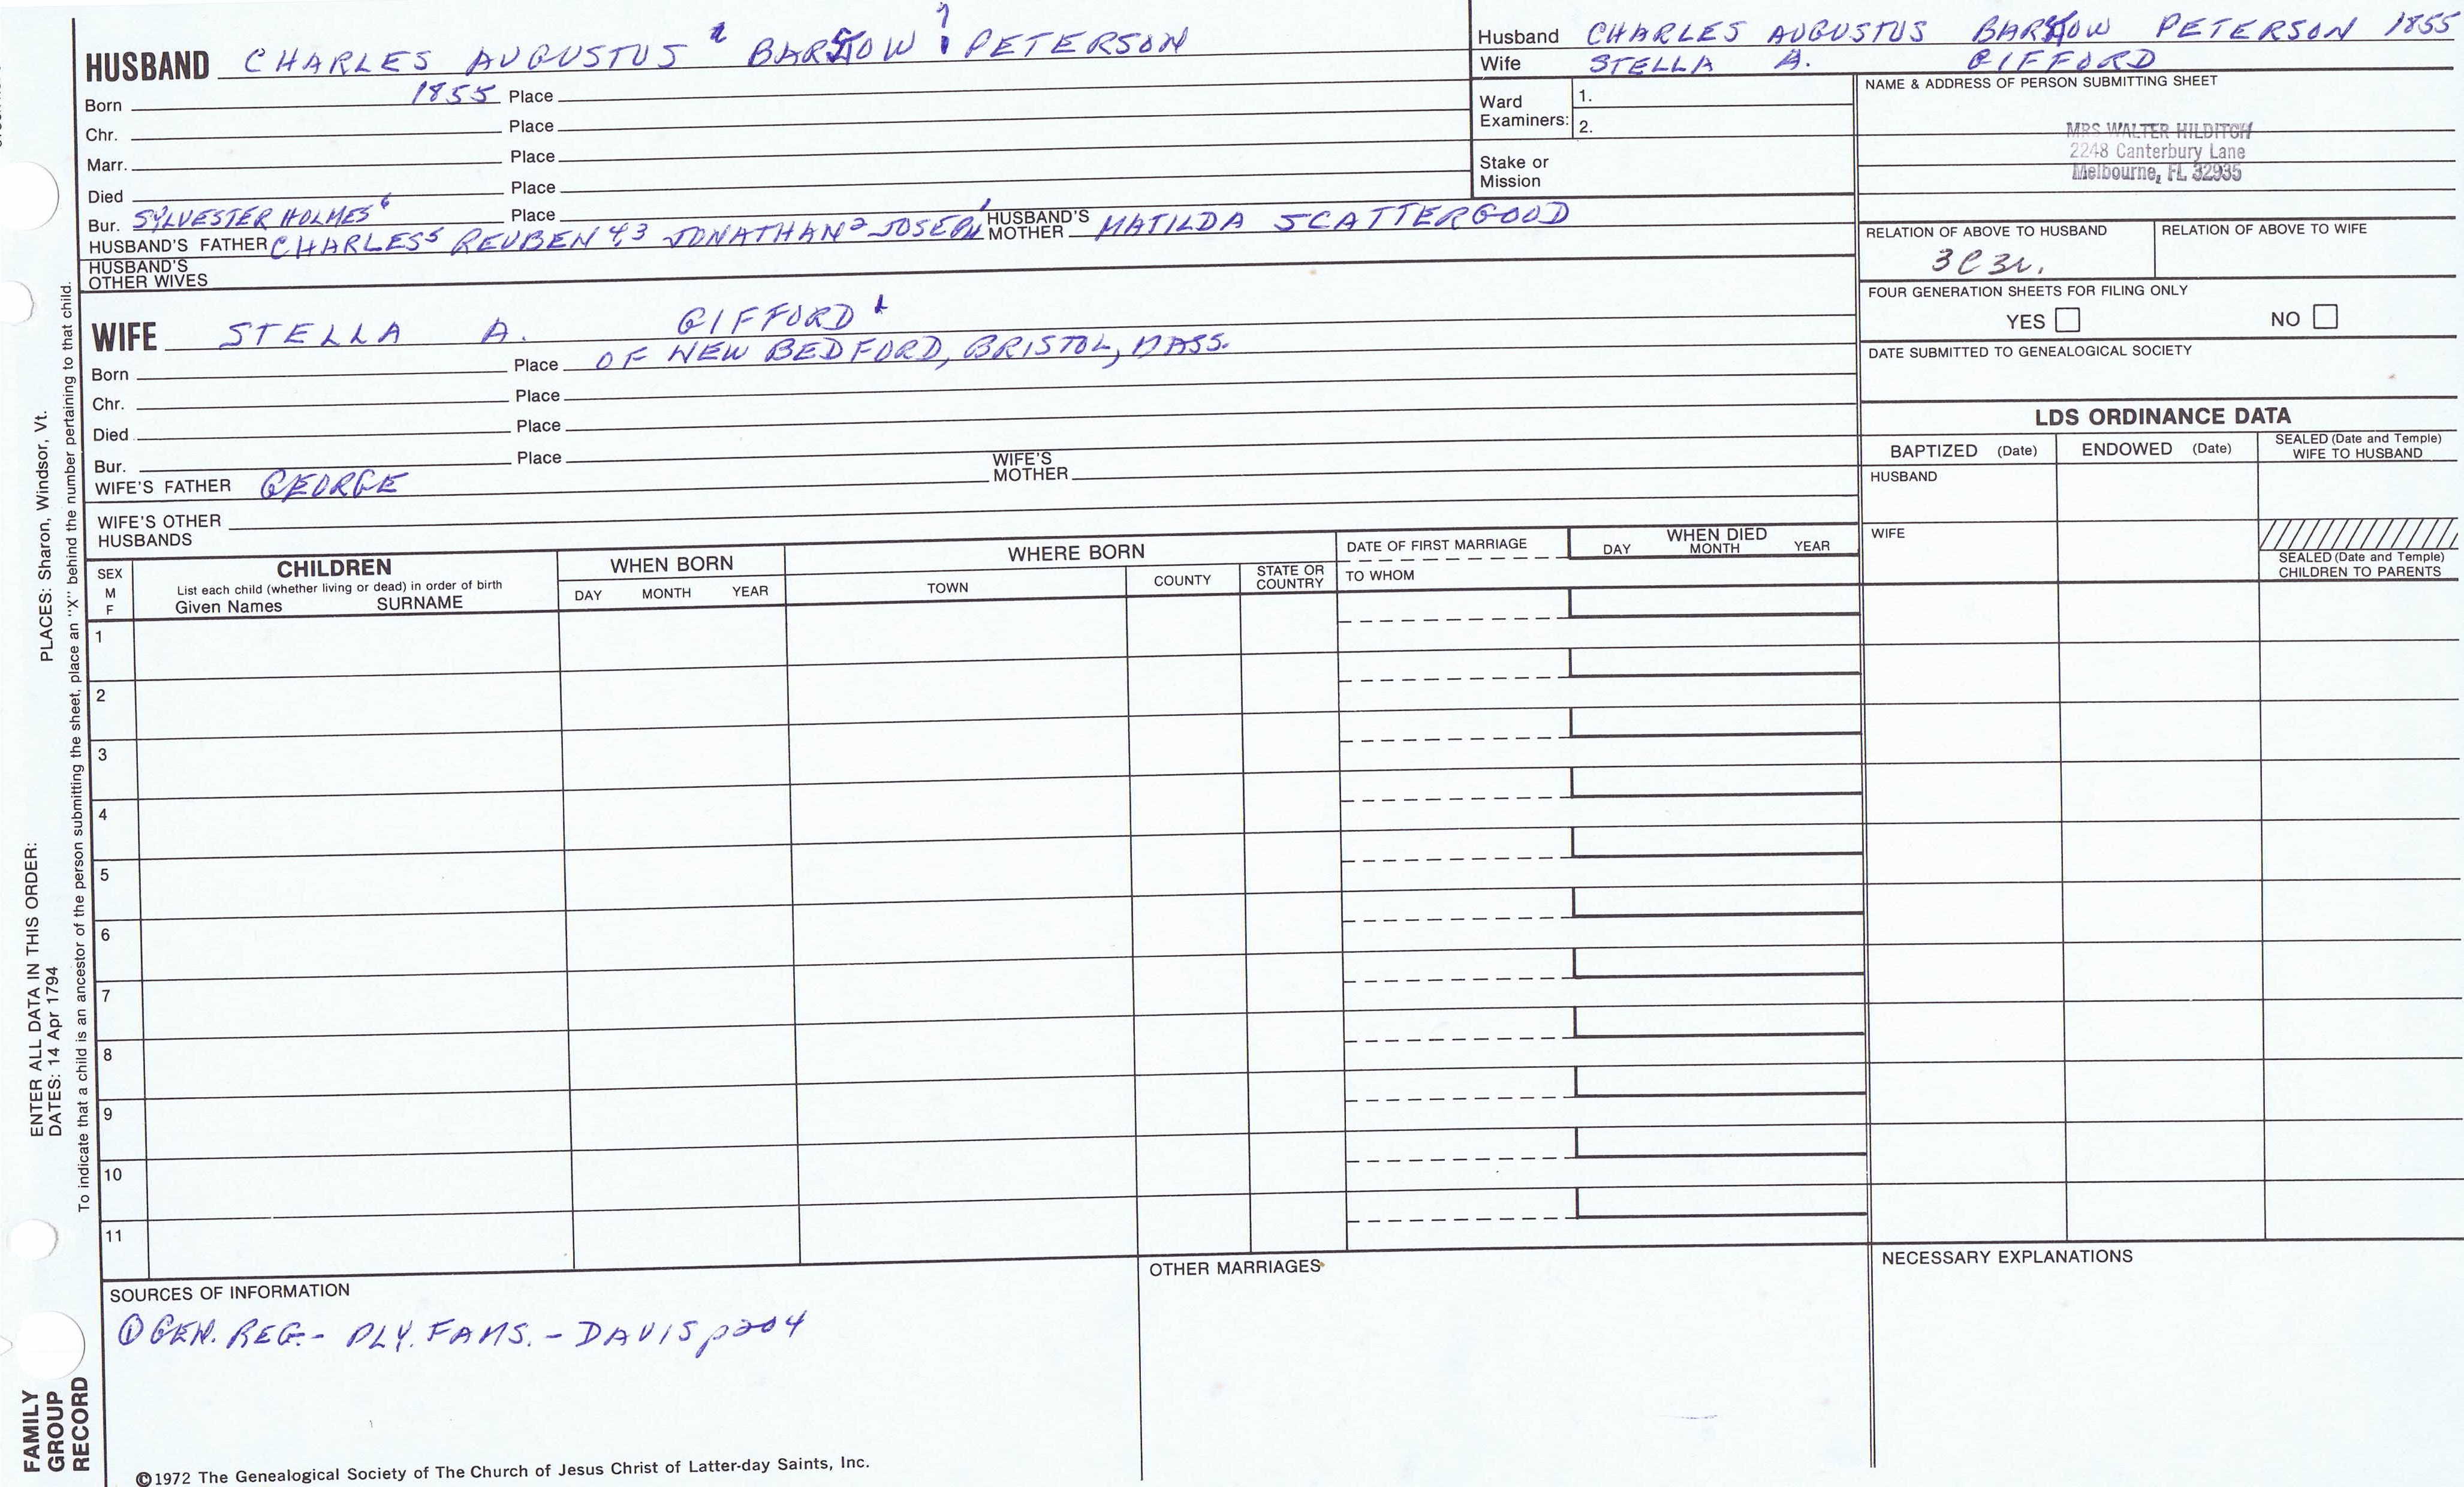 HUSBAND CHARLES AUGUSTUS BARSTOW ? PETERSON
Born 1855 Place
Chr. Place
Marr. Place
Died Place
Bur. SYLVESTER HOLMES 6 Place
HUSBAND'S FATHER CHARLES 5 REUBEN 4,3 JONATHAN 2 JOSEPH 1 HUSBAND'S MOTHER MATILDA SCATTERGOOD
HUSBAND'S OTHER WIVES
WIFE STELLA A. GIFFORD
Born Place OF NEW BEDFORD, BRISTOL, MASS.
Chr. Place
Died Place
Bur. Place
WIFE'S FATHER GEORGE WIFE'S MOTHER
WIFE'S OTHER HUSBANDS
Husband CHARLES AUGUSTUS BARSTOW PETERSON 1855
Wife STELLA A. GIFFORD
Ward Examiners: 1.
2.
Stake or Mission
NAME & ADDRESS OF PERSON SUBMITTING SHEET
MRS WALTER HILDITCH
2248 Canterbury Lane
Melbourne, FL 32935
RELATION OF ABOVE TO HUSBAND RELATION OF ABOVE TO WIFE
3C3r.
FOUR GENERATION SHEETS FOR FILING ONLY
YES NO
DATE SUBMITTED TO GENEALOGICAL SOCIETY
LDS ORDINANCE DATA
BAPTIZED (Date) ENDOWED (Date) SEALED (Date and Temple) WIFE TO HUSBAND
HUSBAND
WIFE
SEALED (Date and Temple) CHILDREN TO PARENTS
SEX M F
CHILDREN
List each child (whether living or dead) in order of birth
Given Names SURNAME
WHEN BORN
DAY MONTH YEAR
WHERE BORN
TOWN COUNTY STATE OR COUNTRY
DATE OF FIRST MARRIAGE
TO WHOM
WHEN DIED
DAY MONTH YEAR
1
2
3
4
5
6
7
8
9
10
11
SOURCES OF INFORMATION
① GEN. REG.- PLY. FAMS. - DAVIS p204
OTHER MARRIAGES
NECESSARY EXPLANATIONS
©1972 The Genealogical Society of The Church of Jesus Christ of Latter-day Saints, Inc.
ENTER ALL DATA IN THIS ORDER:
DATES: 14 Apr 1794 PLACES: Sharon, Windsor, Vt.
To indicate that a child is an ancestor of the person submitting the sheet, place an "X" behind the number pertaining to that child.
FAMILY
GROUP
RECORD